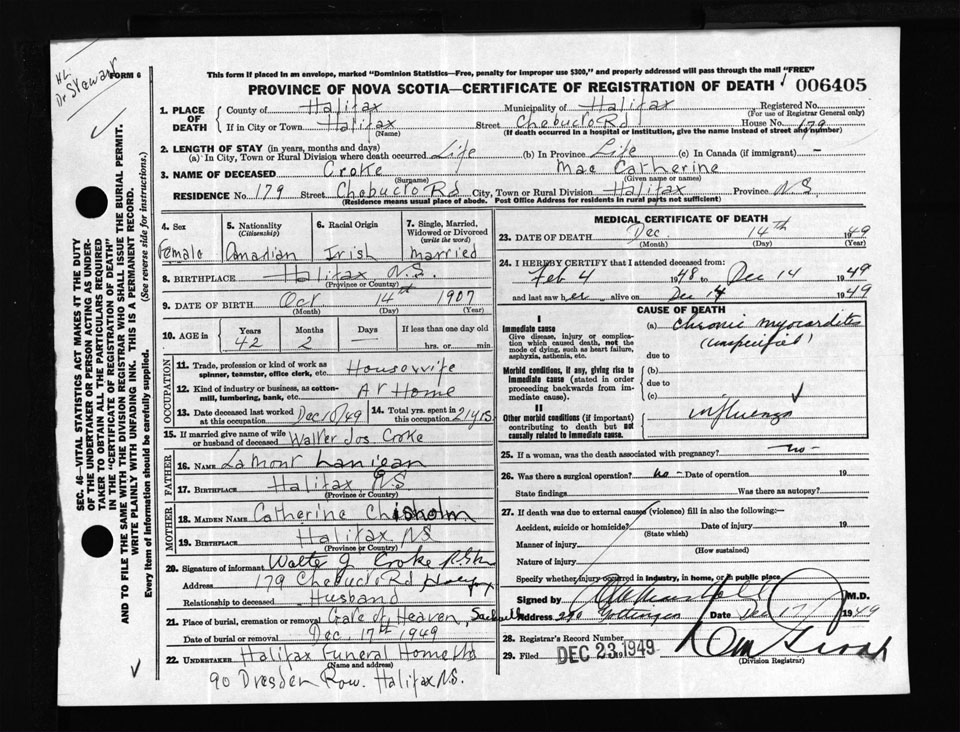 HL
Dr Stewart
FORM 6
This form if placed in an envelope, marked "Dominion Statistics—Free, penalty for improper use $300," and properly addressed will pass through the mail "FREE"
PROVINCE OF NOVA SCOTIA—CERTIFICATE OF REGISTRATION OF DEATH 006405
1. PLACE OF DEATH
County of Halifax Municipality of Halifax Registered No.
(For use of Registrar General only)
If in City or Town Halifax Street Chebucto Rd House No. 179
(Name) (If death occurred in a hospital or institution, give the name instead of street and number)
2. LENGTH OF STAY (in years, months and days)
(a) In City, Town or Rural Division where death occurred Life (b) In Province Life (c) In Canada (if immigrant) —
3. NAME OF DECEASED Croke Mae Catherine
(Surname) (Given name or names)
RESIDENCE No. 179 Street Chebucto Rd City, Town or Rural Division Halifax Province N.S.
(Residence means usual place of abode. Post Office Address for residents in rural parts not sufficient)
SEC. 46—VITAL STATISTICS ACT MAKES IT THE DUTY
OF THE UNDERTAKER OR PERSON ACTING AS UNDER-
TAKER TO OBTAIN ALL THE PARTICULARS REQUIRED
IN THE "CERTIFICATE OF REGISTRATION OF DEATH"
AND TO FILE THE SAME WITH THE DIVISION REGISTRAR WHO SHALL ISSUE THE BURIAL PERMIT.
WRITE PLAINLY WITH UNFADING INK. THIS IS A PERMANENT RECORD.
Every item of information should be carefully supplied. (See reverse side for instructions.)
4. Sex 5. Nationality 6. Racial Origin 7. Single, Married,
(Citizenship) Widowed or Divorced
(write the word)
Female Canadian Irish married
8. BIRTHPLACE Halifax N.S.
(Province or Country)
9. DATE OF BIRTH Oct 14th 1907
(Month) (Day) (Year)
10. AGE in Years Months Days If less than one day old
42 2 — hrs. or min
OCCUPATION
11. Trade, profession or kind of work as
spinner, teamster, office clerk, etc. Housewife
12. Kind of industry or business, as cotton-
mill, lumbering, bank, etc. At Home
13. Date deceased last worked
at this occupation Dec 10/49
14. Total yrs. spent in
this occupation 21 yrs
15. If married give name of wife
or husband of deceased Walter Jos. Croke
FATHER
16. NAME Lamont Lanigan
17. BIRTHPLACE Halifax N.S
(Province or Country)
MOTHER
18. MAIDEN NAME Catherine Chisholm
19. BIRTHPLACE Halifax NS
(Province or Country)
20. Signature of informant Walter J Croke
Address 179 Chebucto Rd Halifax
Relationship to deceased Husband
21. Place of burial, cremation or removal Gate of Heaven, Sackville
Date of burial or removal Dec. 17th 1949
22. UNDERTAKER Halifax Funeral Home Ltd
(Name and address)
90 Dresden Row. Halifax N.S.
MEDICAL CERTIFICATE OF DEATH
23. DATE OF DEATH Dec. 14th 1949
(Month) (Day) (Year)
24. I HEREBY CERTIFY that I attended deceased from:
Feb 4 1948 to Dec 14 1949
and last saw her alive on Dec 14 1949
CAUSE OF DEATH
I
Immediate cause
Give disease, injury or complica-
tion which caused death, not the
mode of dying, such as heart failure,
asphyxia, asthenia, etc.
(a) Chronic myocarditis
(unspecified)
due to
Morbid conditions, if any, giving rise to
immediate cause (stated in order
proceeding backwards from im-
mediate cause).
(b)
due to
(c)
II
Other morbid conditions (if important)
contributing to death but not
causally related to immediate cause.
influenza
25. If a woman, was the death associated with pregnancy? no-
26. Was there a surgical operation? no - Date of operation 19
State findings Was there an autopsy?
27. If death was due to external causes (violence) fill in also the following:—
Accident, suicide or homicide? Date of injury 19
(State which)
Manner of injury
(How sustained)
Nature of injury
Specify whether injury occurred in industry, in home, or in public place
Signed by M.D.
Address 290 Gottingen Date Dec 17 1949
28. Registrar's Record Number
29. Filed DEC 23 1949
(Division Registrar)